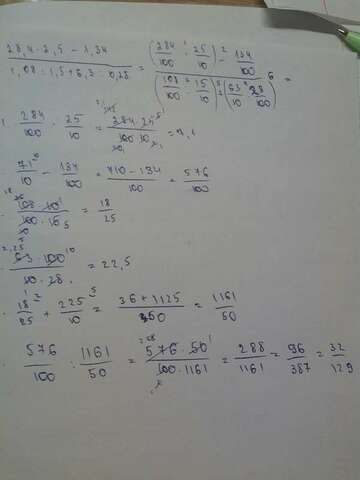 (28,4 · 2,5 - 1,34) / (1,08 : 1,5 + 6,3 : 0,28) = ((284/100 · 25/10) - 134/100) / ((108/100 : 15/10) + (63/10 : 28/100)) =
284/100 · 25/10 = 284·25/100·10 = 7,1
71/10 - 134/100 = 710-134/100 = 576/100
108·10/100·15 = 18/25
63·100/10·28 = 22,5
18/25 + 225/10 = 36+1125/50 = 1161/50
576/100 : 1161/50 = 576·50/100·1161 = 288/1161 = 96/387 = 32/129